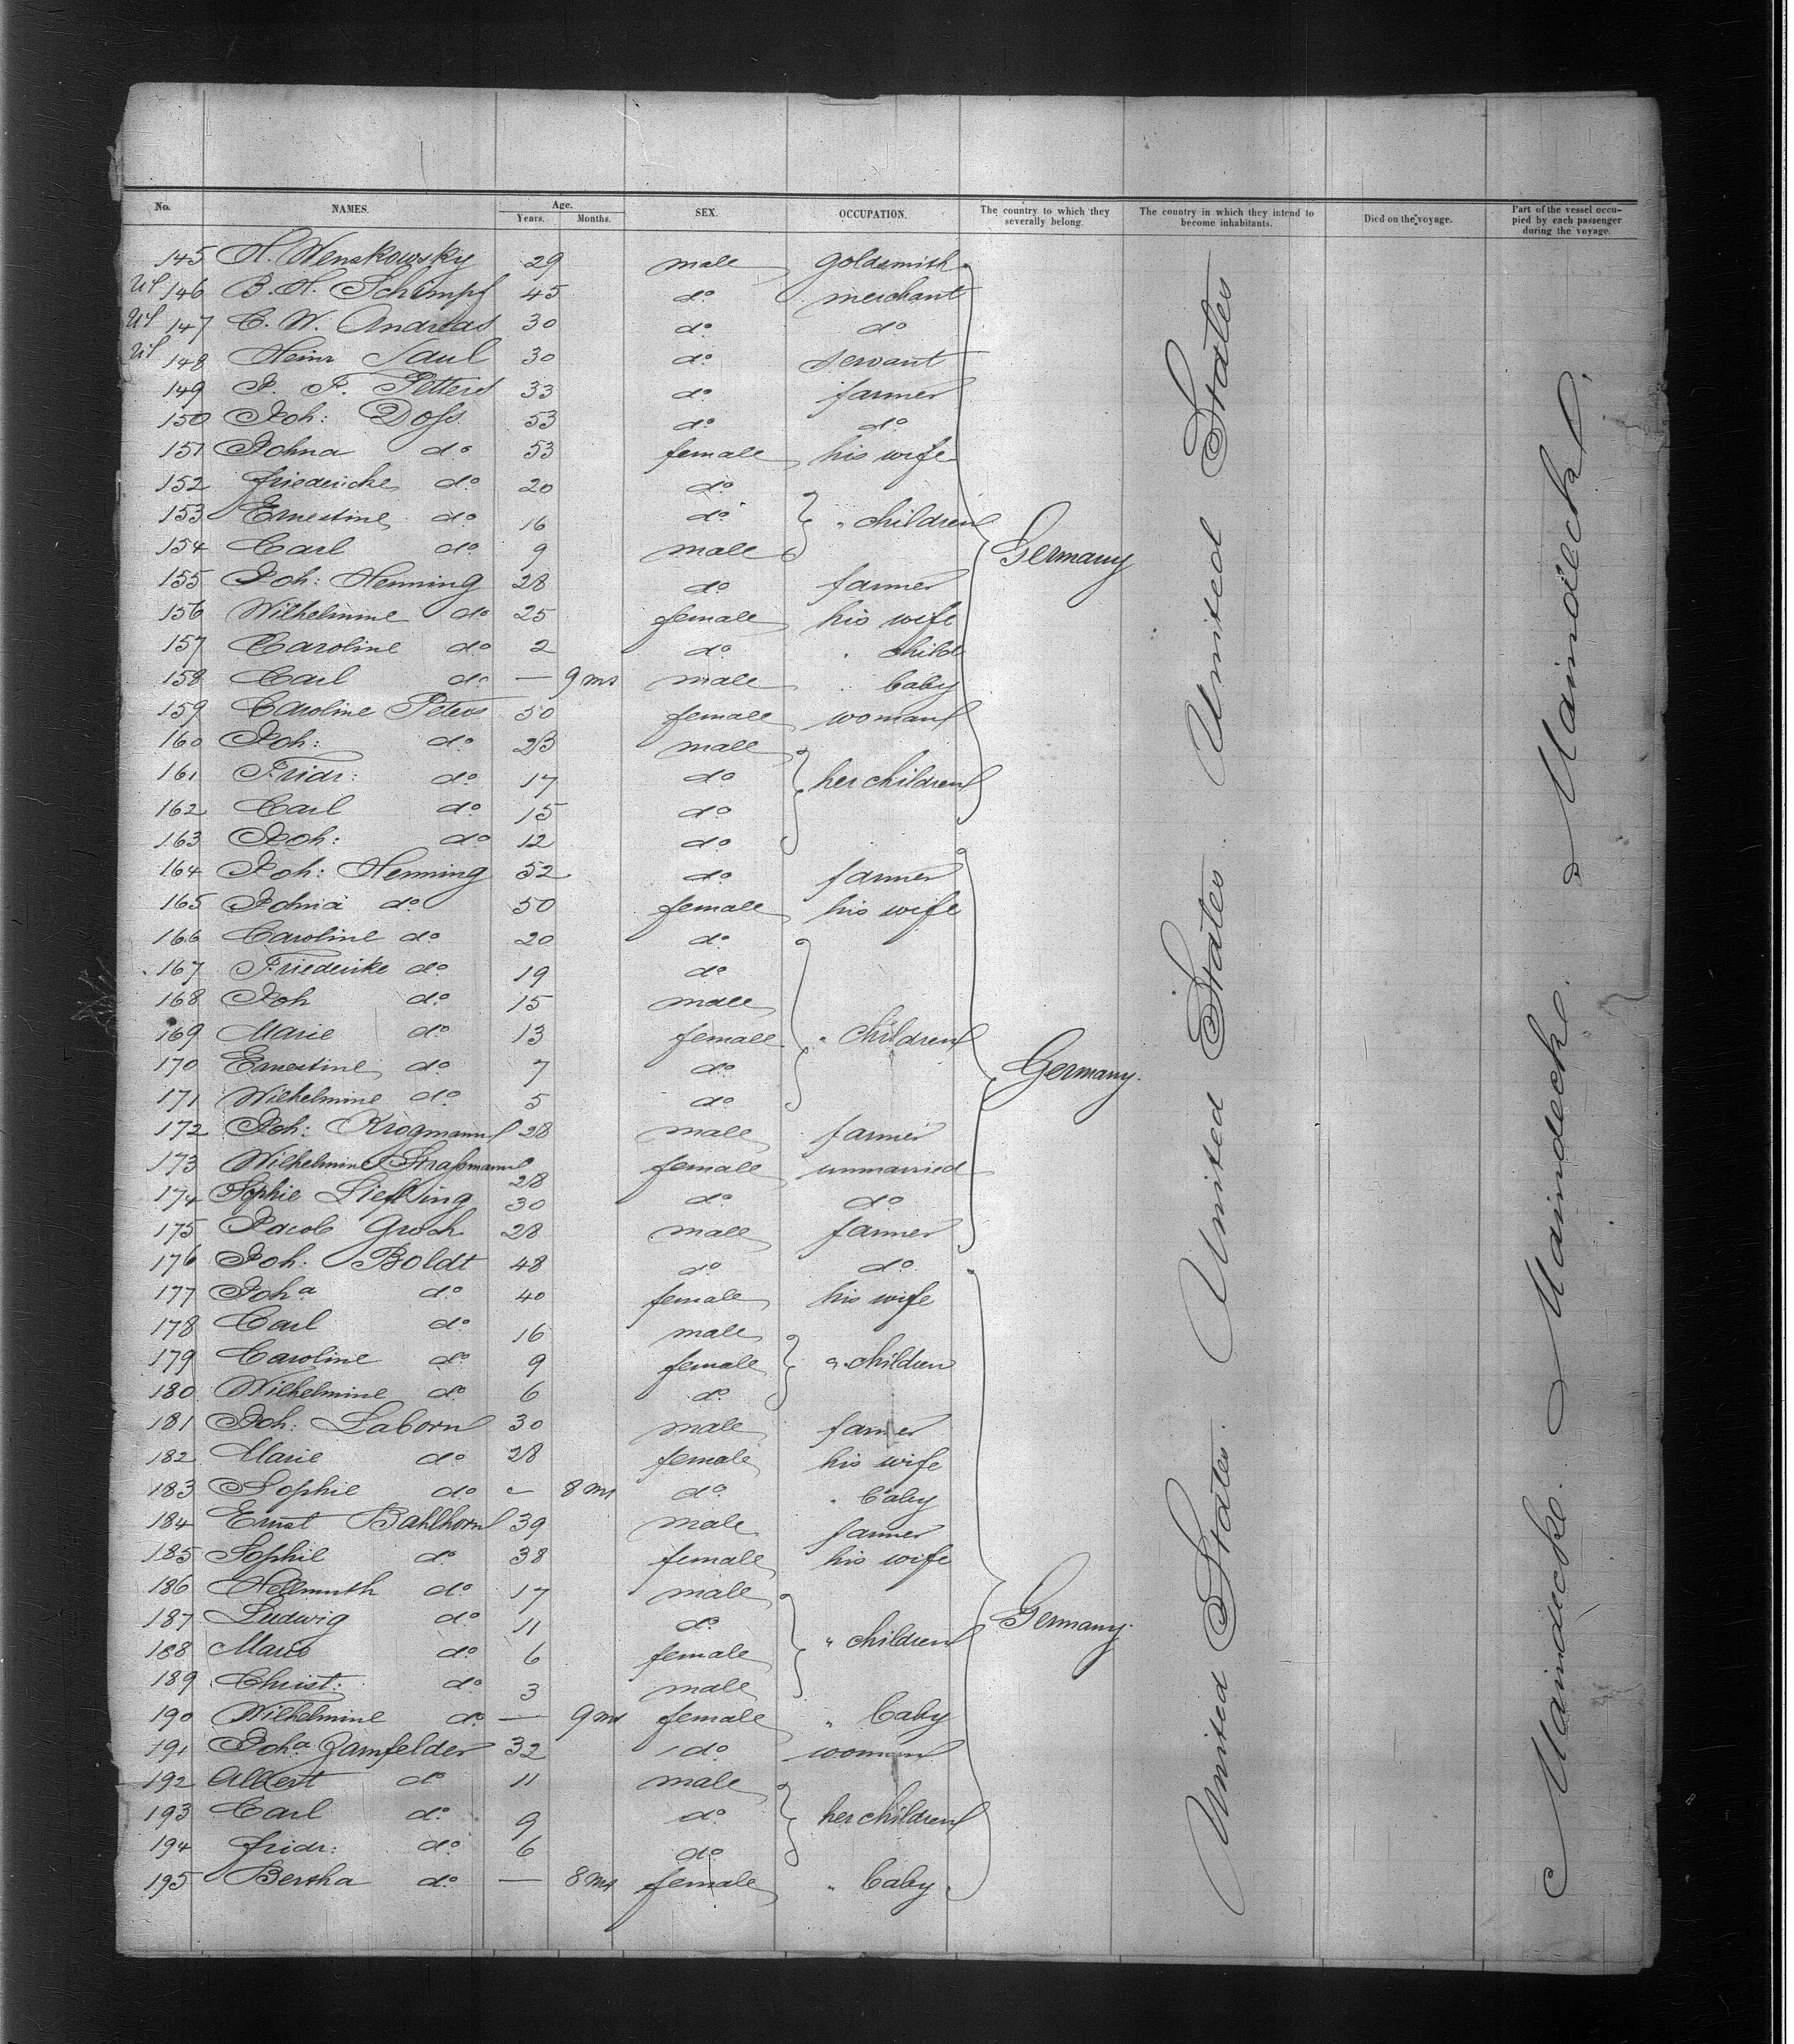 No. NAMES. Age. Years. Months. SEX. OCCUPATION. The country to which they severally belong. The country in which they intend to become inhabitants. Died on the voyage. Part of the vessel occupied by each passenger during the voyage.
145 H. Wenskowsky 29 male goldsmith
US 146 B. H. Schimpf 45 do merchant
US 147 C. W. Andreas 30 do do
US 148 Heinr Saul 30 do servant
149 J. F. Petters 33 do farmer
150 Joh: Doss 53 do do
151 Johna do 53 female his wife
152 Friedericke do 20 do
153 Ernestine do 16 do " children
154 Carl do 9 male
Germany
155 Joh: Henning 28 do farmer
156 Wilhelmine do 25 female his wife
157 Caroline do 2 do " child
158 Carl do — 9 ms male " baby
159 Caroline Peters 50 female woman
160 Joh: do 23 male
161 Fridr: do 17 do her children
162 Carl do 15 do
163 Joh: do 12 do
164 Joh: Henning 52 do farmer
165 Johna do 50 female his wife
166 Caroline do 20 do
167 Friederike do 19 do
168 Joh do 15 male
169 Marie do 13 female " children
170 Ernestine do 7 do Germany.
171 Wilhelmine do 5 do
172 Joh: Krogmann 28 male farmer
173 Wilhelmine Strassmann 28 female unmarried
174 Sophie Liefting 30 do do
175 Jacob Groch 28 male farmer
176 Joh: Boldt 48 do do
177 Joha do 40 female his wife
178 Carl do 16 male
179 Caroline do 9 female " children
180 Wilhelmine do 6 do
181 Joh: Laborn 30 male farmer
182 Marie do 28 female his wife
183 Sophie do — 8 ms do " baby
184 Ernst Bahlhorn 39 male farmer
185 Sophie do 38 female his wife
186 Hellmuth do 17 male
187 Ludwig do 11 do " children Germany.
188 Marie do 6 female
189 Christ: do 3 male
190 Wilhelmine do — 9 ms female " baby
191 Joha Zamfelder 32 do woman
192 Albert do 11 male
193 Carl do 9 do her children
194 Fridr: do 6 do
195 Bertha do — 8 ms female " baby.
United States. United States. United States
Maindecke. Maindecke. Maindeck.